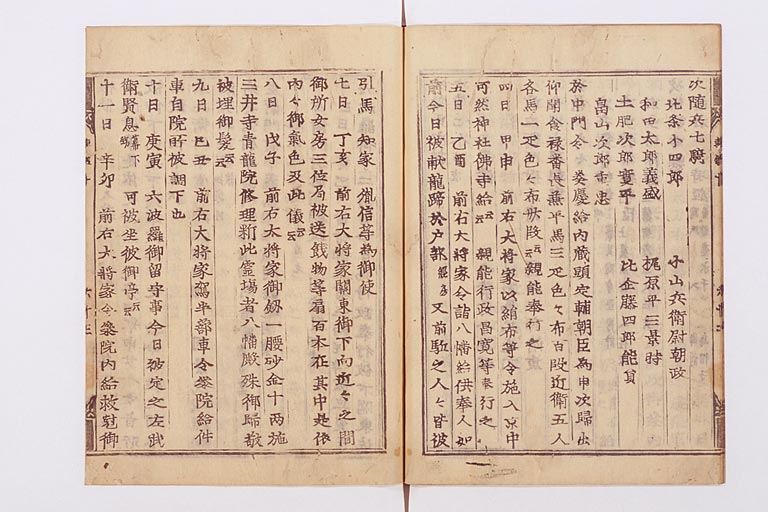 次随兵七騎
北条小四郎 小山兵衛尉朝政
和田太郎義盛 梶原平三景時
土肥次郎実平 比企藤四郎能員
畠山次郎重忠
於中門 給内蔵頭 宗輔朝臣為申次帰出
仰聞食禄番長兼平馬三疋色々布百段近衛五人
各馬一疋色々布 段云々親能奉行之
四日 甲申 前右大将家以絹布等令施入京中
可然神社仏寺給云々 親能行政昌寛等奉行之
五日 乙酉 前右大将家令詣八幡給供奉人如
前今日被献龍蹄於戸部 又前駈之人々皆被
引馬 知家 胤信等為御使
七日 丁亥 前右大将家関東御下向近々之間
御所女房三位局被送餞物等扇百本在其中是依
内々御気色及此儀云々
八日 戊子 前右大将家御釼一腰砂金十両施
三井寺青龍院修理新此霊場者八幡殿殊御帰敬
被埋御髪云々
九日 己丑 前右大将家駕半蔀車令参院給件
車自院所被調下也
十日 庚寅 六波羅御留守事今日被定之左武
衛賢息 可被坐彼御亭云々
十一日 辛卯 前右大将家令参院内給被慰御